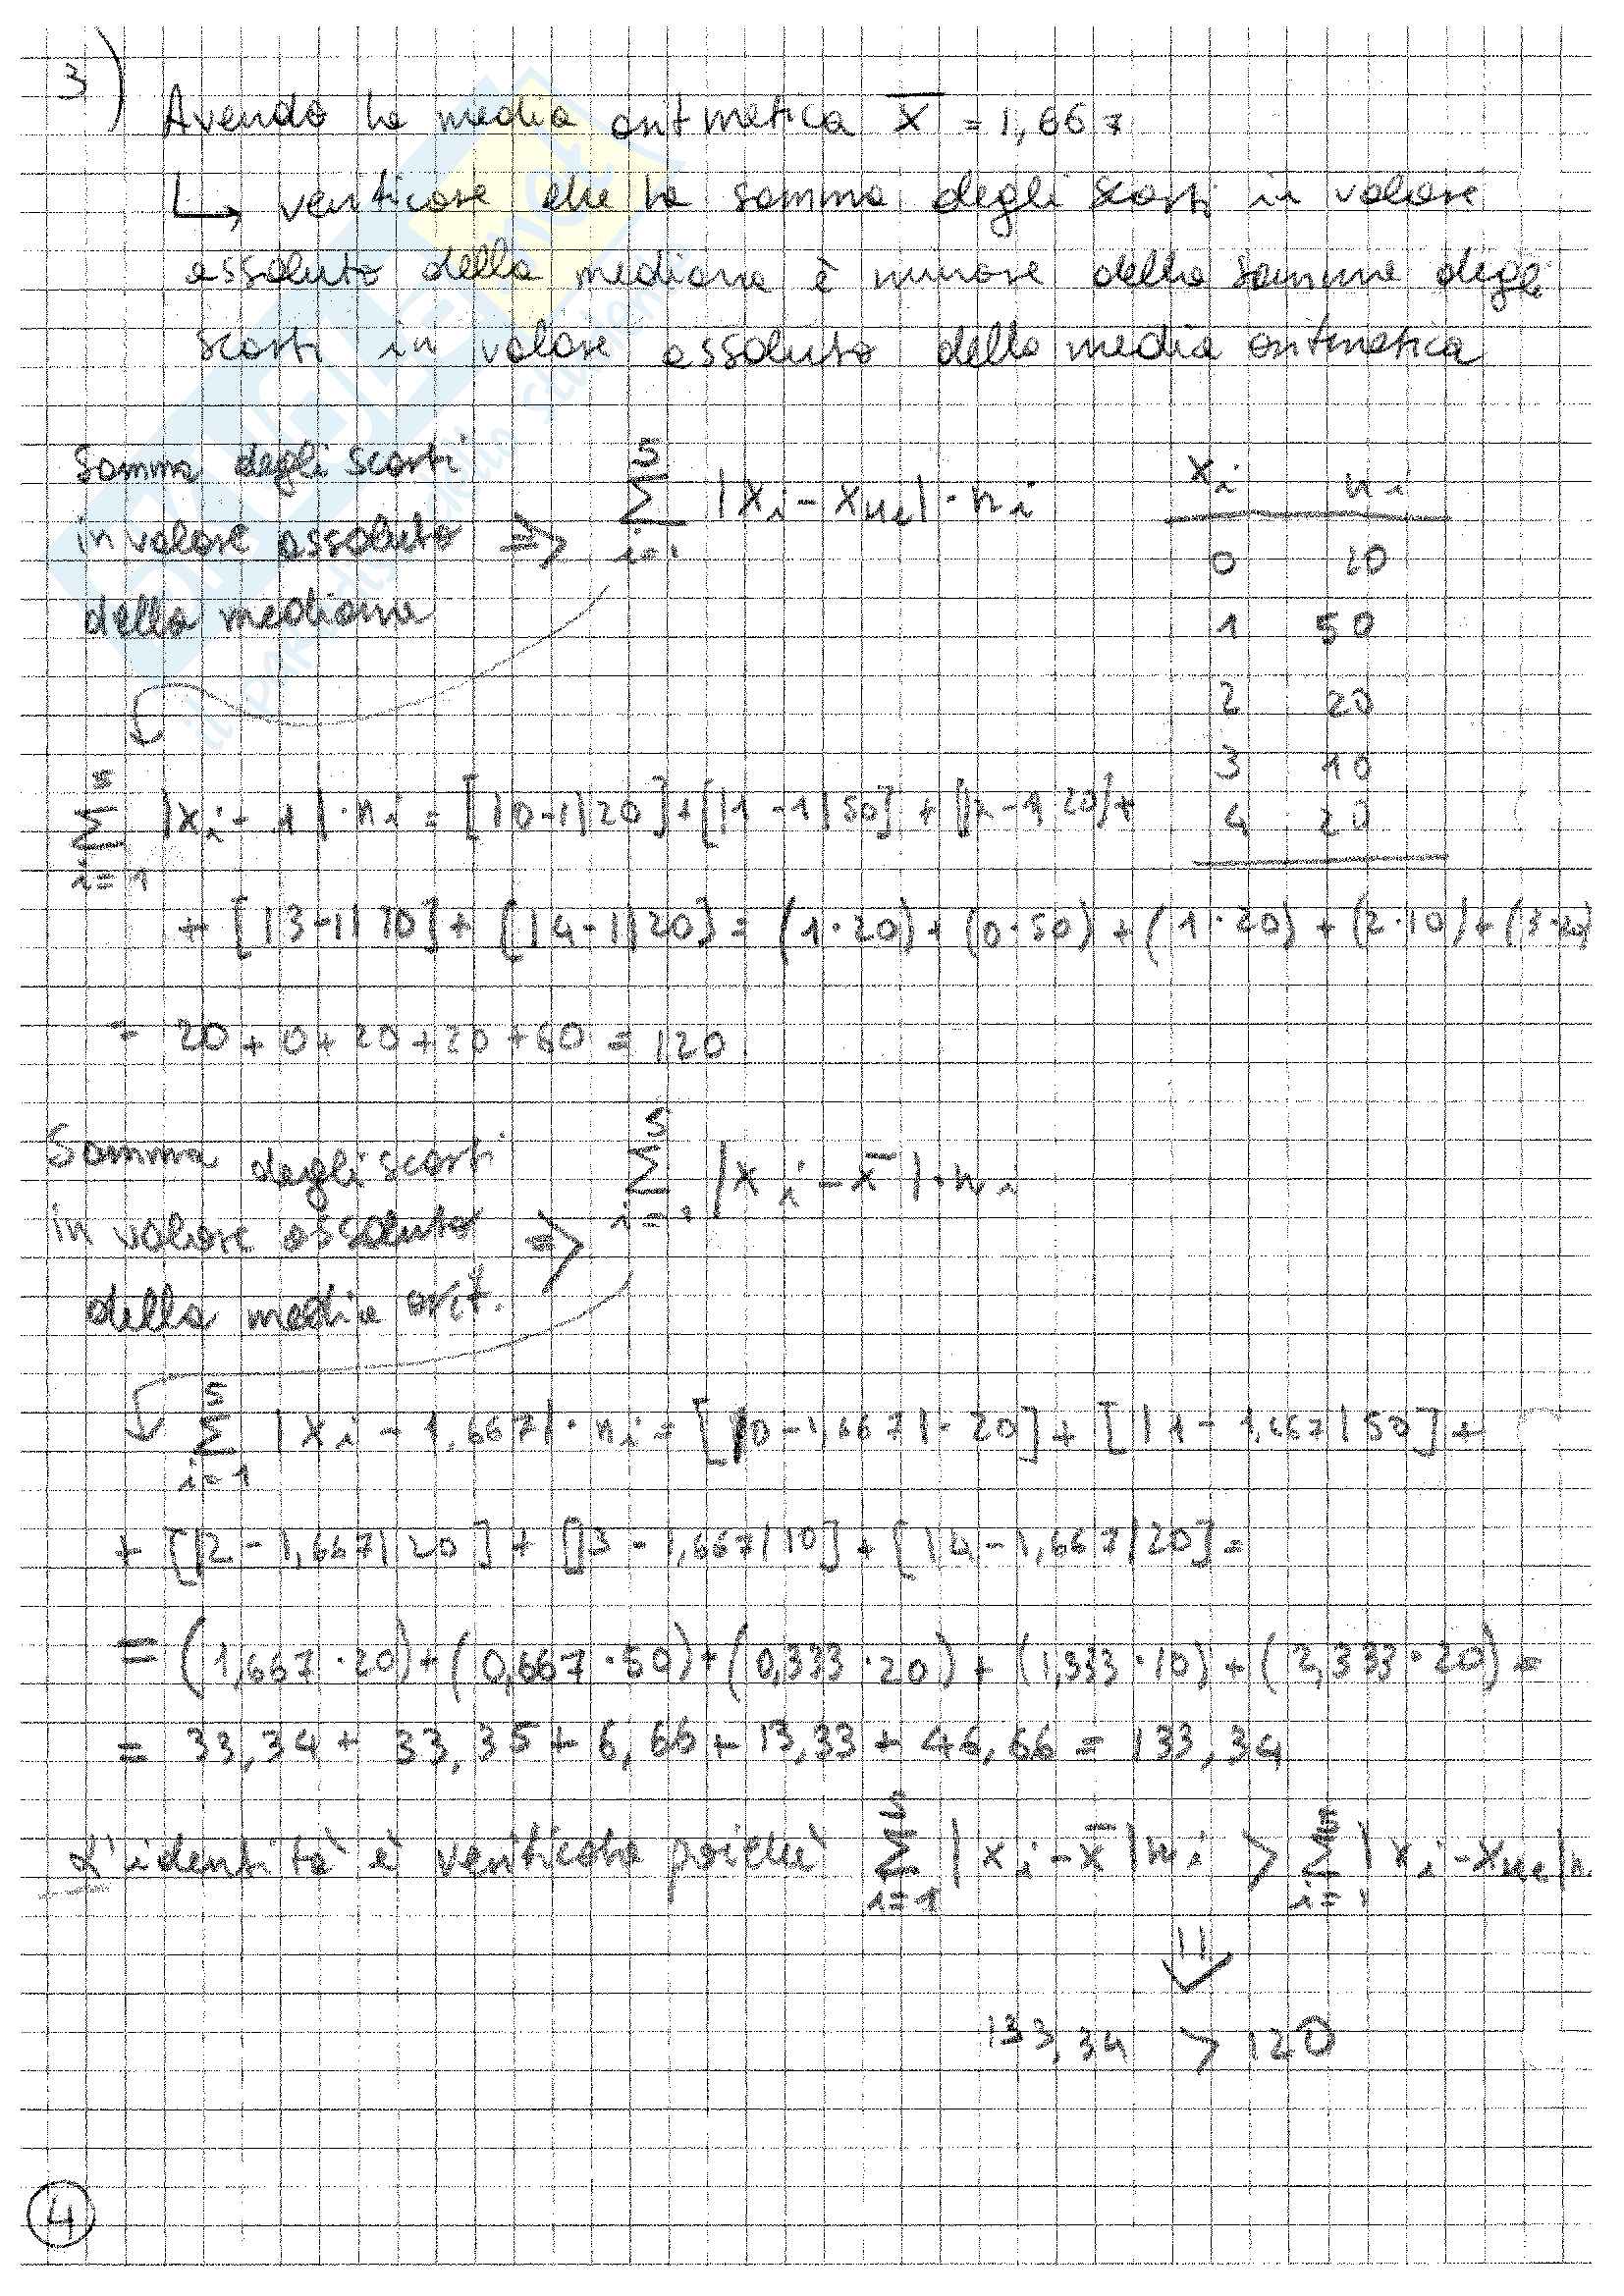 3) Avendo la media aritmetica x̄ = 1,667
↳ verificare che la somma degli scarti in valore
assoluto della mediana è minore della somma degli
scarti in valore assoluto della media aritmetica
Somma degli scarti
in valore assoluto ⇒ 5 Σ i=1 |xi - xMe| · ni
della mediana
xi ni
0 20
1 50
2 20
3 10
4 20
5 Σ i=1 |xi - 1| · ni = [|0-1|20] + [|1-1|50] + [|2-1|20] +
+ [|3-1|10] + [|4-1|20] = (1·20) + (0·50) + (1·20) + (2·10) + (3·20)
= 20 + 0 + 20 + 20 + 60 = 120
Somma degli scarti
in valore assoluto ⇒ 5 Σ i=1 |xi - x̄| · ni
della media arit.
5 Σ i=1 |xi - 1,667| · ni = [|0-1,667|·20] + [|1-1,667|50] +
+ [|2-1,667|20] + [|3-1,667|10] + [|4-1,667|20] =
= (1,667·20) + (0,667·50) + (0,333·20) + (1,333·10) + (2,333·20) =
= 33,34 + 33,35 + 6,66 + 13,33 + 46,66 = 133,34
L'identità è verificata poichè 5 Σ i=1 |xi - x̄| ni > 5 Σ i=1 |xi - xMe| n
⇓
133,34 > 120
4